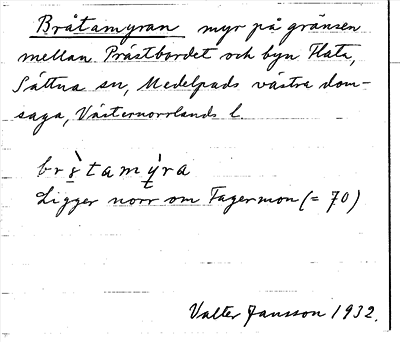 Bråtamyran myr på gränsen
mellan Prästbordet och byn Flata,
Sättna sn, Medelpads västra dom-
saga, Västernorrlands l.
br s̱̀tamý̱ra
Ligger norr om Fagermon (= 70)
Valter Jansson 1932.